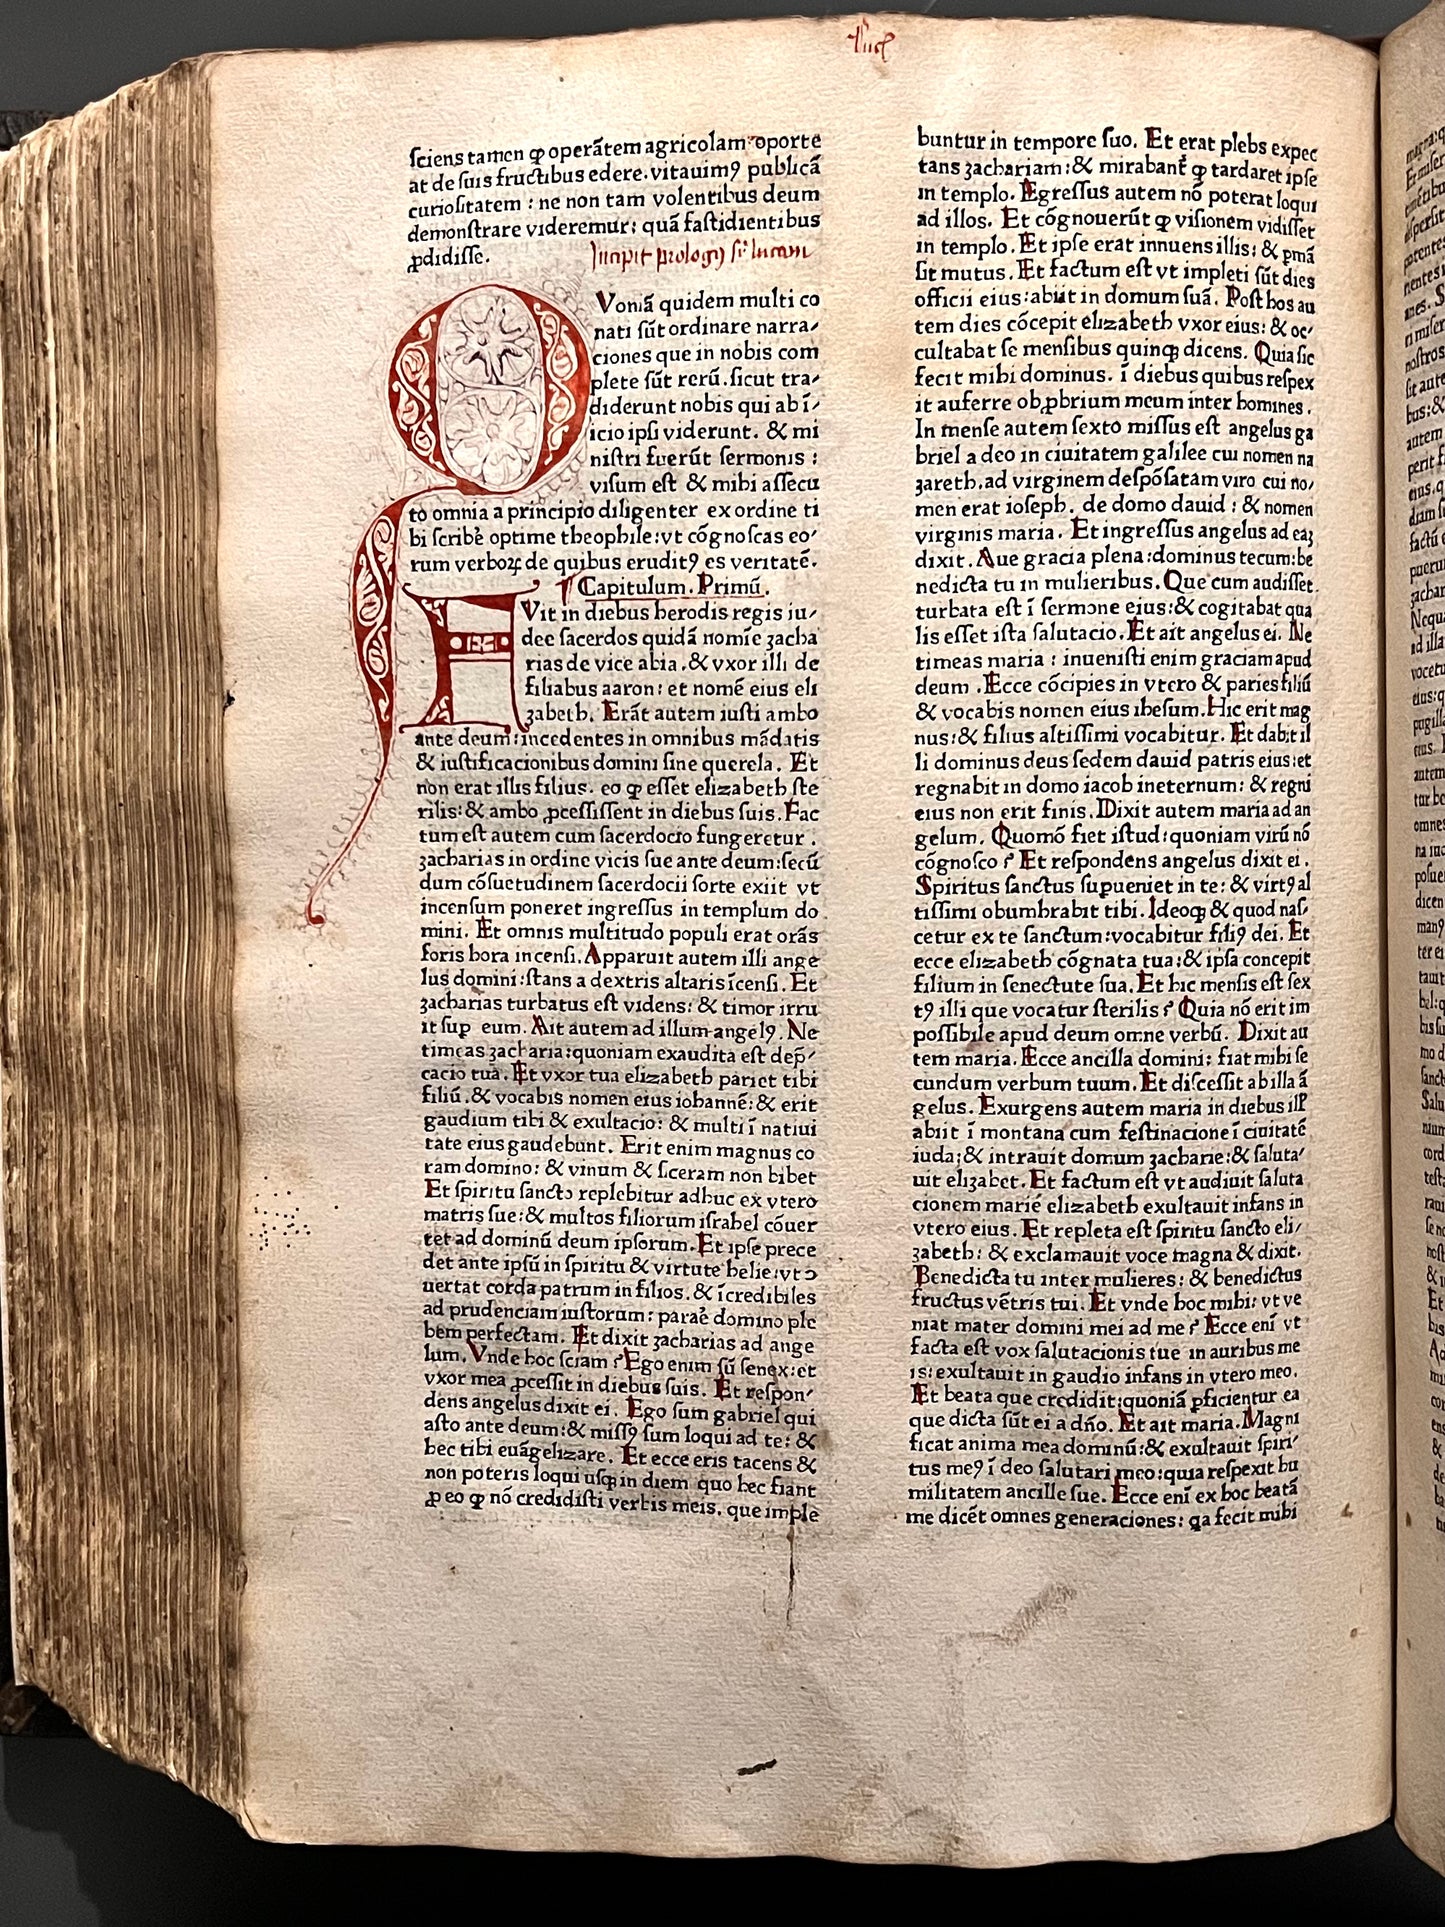 sciens tamen ꝙ operātem agricolam oporte
at de suis fructibus edere. vitauimꝰ publicā
curiositatem : ne non tam volentibus deum
demonstrare videremur: quā fastidientibus
ꝓdidisse.
Incipit prologꝯ
Voniā quidem multi co
nati sūt ordinare narra/
ciones que in nobis com
plete sūt rerū. sicut tra/
diderunt nobis qui ab ī/
icio ipsi viderunt. & mi
nistri fuerūt sermonis :
visum est & mihi assecu
to omnia a principio diligenter ex ordine ti
bi scribe᷒ optime theophile: vt cōgnoscas eo/
rum verboꝝ de quibus eruditꝰ es veritatē.
¶ Capitulum. Primū.
FVit in diebus herodis regis iu/
dee sacerdos quidā nomīe zacha
rias de vice abia. & vxor illi de
filiabus aaron: et nomē eius eli
zabeth. Erāt autem iusti ambo
ante deum: incedentes in omnibus mādatis
& iustificacionibus domini sine querela. Et
non erat illis filius. eo ꝙ esset elizabeth ste
rilis: & ambo ꝓcessissent in diebus suis. Fac
tum est autem cum sacerdocio fungeretur .
zacharias in ordine vicis sue ante deum: secū
dum cōsuetudinem sacerdocii sorte exiit vt
incensum poneret ingressus in templum do
mini. Et omnis multitudo populi erat orās
foris hora incensi. Apparuit autem illi ange
lus domini: stans a dextris altaris īcensi. Et
zacharias turbatus est videns: & timor irru
it suꝑ eum. Ait autem ad illum angelꝰ. Ne
timeas zacharia: quoniam exaudita est dep̄/
cacio tua. Et vxor tua elizabeth pariet tibi
filiū. & vocabis nomen eius iohannē: & erit
gaudium tibi & exultacio: & multi ī natiui
tate eius gaudebunt. Erit enim magnus co
ram domino: & vinum & siceram non bibet
Et spiritu sancto replebitur adhuc ex vtero
matris sue: & multos filiorum israhel cōuer
tet ad dominū deum ipsorum. Et ipse prece
det ante ipsū in spiritu & virtute helie: vt ↄ
uertat corda patrum in filios. & īcredibiles
ad prudenciam iustorum: parae᷒ domino ple
bem perfectam. Et dixit zacharias ad ange
lum. Vnde hoc sciam ? Ego enim sū senex: et
vxor mea ꝓcessit in diebus suis. Et respon/
dens angelus dixit ei. Ego sum gabriel qui
asto ante deum: & missꝰ sum loqui ad te: &
hec tibi euāgelizare. Et ecce eris tacens &
non poteris loqui usqꝫ in diem quo hec fiant
ꝓ eo ꝙ nō credidisti verbis meis. que imple
buntur in tempore suo. Et erat plebs expec
tans zachariam: & mirabant᷒ ꝙ tardaret ipse
in templo. Egressus autem nō poterat loqui
ad illos. Et cōgnouerūt ꝙ visionem vidisset
in templo. Et ipse erat innuens illis: & ꝑmā
sit mutus. Et factum est vt impleti sūt dies
officii eius: abiit in domum suā. Post hos au
tem dies cōcepit elizabeth vxor eius: & oc/
cultabat se mensibus quinqꝫ dicens. Quia sic
fecit mihi dominus. ī diebus quibus respex
it auferre obꝓbrium meum inter homines.
In mense autem sexto missus est angelus ga
briel a deo in ciuitatem galilee cui nomen na
zareth. ad virginem despōsatam viro cui no/
men erat ioseph. de domo dauid : & nomen
virginis maria. Et ingressus angelus ad eaꝫ
dixit. Aue gracia plena: dominus tecum: be
nedicta tu in mulieribus. Que cum audisset.
turbata est ī sermone eius: & cogitabat qua
lis esset ista salutacio. Et ait angelus ei. Ne
timeas maria : inuenisti enim graciam apud
deum . Ecce cōcipies in vtero & paries filiū
& vocabis nomen eius ihesum. Hic erit mag
nus: & filius altissimi vocabitur. Et dabit il
li dominus deus sedem dauid patris eius: et
regnabit in domo iacob ineternum: & regni
eius non erit finis. Dixit autem maria ad an
gelum. Quomō fiet istud: quoniam virū nō
cōgnosco ? Et respondens angelus dixit ei.
Spiritus sanctus suꝑueniet in te: & virtꝰ al
tissimi obumbrabit tibi. Ideoqꝫ & quod nas/
cetur ex te sanctum: vocabitur filiꝰ dei. Et
ecce elizabeth cōgnata tua: & ipsa concepit
filium in senectute sua. Et hic mensis est sex
tꝰ illi que vocatur sterilis ? Quia nō erit im
possibile apud deum omne verbū. Dixit au
tem maria. Ecce ancilla domini: fiat mihi se
cundum verbum tuum. Et discessit ab illa ā
gelus. Exurgens autem maria in diebus ill᷒
abiit ī montana cum festinacione ī ciuitatē
iuda: & intrauit domum zacharie: & saluta/
uit elizabet. Et factum est vt audiuit saluta
cionem marie elizabeth exultauit infans in
vtero eius. Et repleta est spiritu sancto eli/
zabeth: & exclamauit voce magna & dixit.
Benedicta tu inter mulieres: & benedictus
fructus vētris tui. Et vnde hoc mihi: vt ve
niat mater domini mei ad me ? Ecce enī vt
facta est vox salutacionis tue in auribus me
is: exultauit in gaudio infans in vtero meo.
Et beata que credidit: quoniā ꝑficientur ea
que dicta sūt ei a dño. Et ait maria. Magni
ficat anima mea dominū: & exultauit spiri/
tus meꝰ ī deo salutari meo: quia respexit hu
militatem ancille sue. Ecce enī ex hoc beatā
me dicēt omnes generaciones: qa fecit mihi